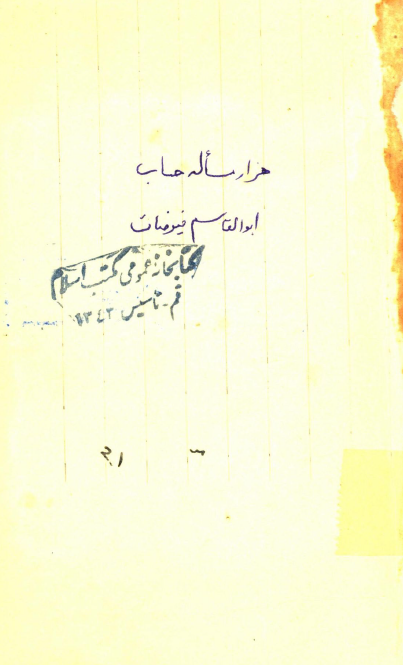 هزار مسأله حساب
ابوالقاسم فیوضات
کتابخانه عمومی مکتب اسلام
قم - تأسیس ۱۳۴۳